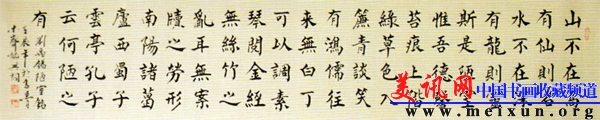 山不在高
有仙則名
水不在深
有龍則靈
斯是陋室
惟吾德馨
苔痕上階
綠草色入
簾青談笑
有鴻儒往
來無白丁
可以調素
琴閱金經
無絲竹之
亂耳無案
牘之勞形
南陽諸葛
廬西蜀子
雲亭孔子
云何陋之
有
劉禹錫陋室銘
美讯网
中国书画收藏频道
www.meixun.net